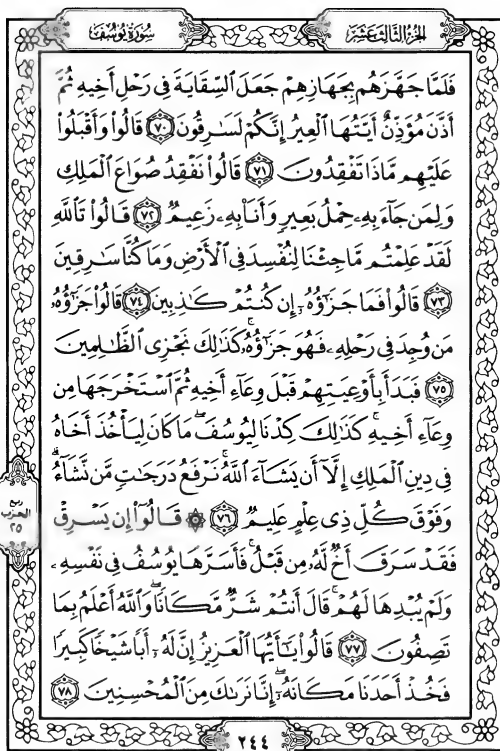 سُورَةُ يُوسُفَ
الجزء الثالث عشر
فَلَمَّا جَهَّزَهُم بِجَهَازِهِمْ جَعَلَ ٱلسِّقَايَةَ فِى رَحْلِ أَخِيهِ ثُمَّ
أَذَّنَ مُؤَذِّنٌ أَيَّتُهَا ٱلْعِيرُ إِنَّكُمْ لَسَـٰرِقُونَ ٧٠ قَالُوا۟ وَأَقْبَلُوا۟
عَلَيْهِم مَّاذَا تَفْقِدُونَ ٧١ قَالُوا۟ نَفْقِدُ صُوَاعَ ٱلْمَلِكِ
وَلِمَن جَآءَ بِهِۦ حِمْلُ بَعِيرٍ وَأَنَا۠ بِهِۦ زَعِيمٌ ٧٢ قَالُوا۟ تَٱللَّهِ
لَقَدْ عَلِمْتُم مَّا جِئْنَا لِنُفْسِدَ فِى ٱلْأَرْضِ وَمَا كُنَّا سَـٰرِقِينَ
٧٣ قَالُوا۟ فَمَا جَزَٰٓؤُهُۥٓ إِن كُنتُمْ كَـٰذِبِينَ ٧٤ قَالُوا۟ جَزَٰٓؤُهُۥ
مَن وُجِدَ فِى رَحْلِهِۦ فَهُوَ جَزَٰٓؤُهُۥ ۚ كَذَٰلِكَ نَجْزِى ٱلظَّـٰلِمِينَ
٧٥ فَبَدَأَ بِأَوْعِيَتِهِمْ قَبْلَ وِعَآءِ أَخِيهِ ثُمَّ ٱسْتَخْرَجَهَا مِن
وِعَآءِ أَخِيهِ ۚ كَذَٰلِكَ كِدْنَا لِيُوسُفَ ۖ مَا كَانَ لِيَأْخُذَ أَخَاهُ
فِى دِينِ ٱلْمَلِكِ إِلَّآ أَن يَشَآءَ ٱللَّهُ ۚ نَرْفَعُ دَرَجَـٰتٍ مَّن نَّشَآءُ ۗ
وَفَوْقَ كُلِّ ذِى عِلْمٍ عَلِيمٌ ٧٦ ۞ قَالُوٓا۟ إِن يَسْرِقْ
فَقَدْ سَرَقَ أَخٌ لَّهُۥ مِن قَبْلُ ۚ فَأَسَرَّهَا يُوسُفُ فِى نَفْسِهِۦ
وَلَمْ يُبْدِهَا لَهُمْ ۚ قَالَ أَنتُمْ شَرٌّ مَّكَانًا ۖ وَٱللَّهُ أَعْلَمُ بِمَا
تَصِفُونَ ٧٧ قَالُوا۟ يَـٰٓأَيُّهَا ٱلْعَزِيزُ إِنَّ لَهُۥٓ أَبًا شَيْخًا كَبِيرًا
فَخُذْ أَحَدَنَا مَكَانَهُۥٓ ۖ إِنَّا نَرَىٰكَ مِنَ ٱلْمُحْسِنِينَ ٧٨
ربع
الحزب
٢٥
٢٤٤